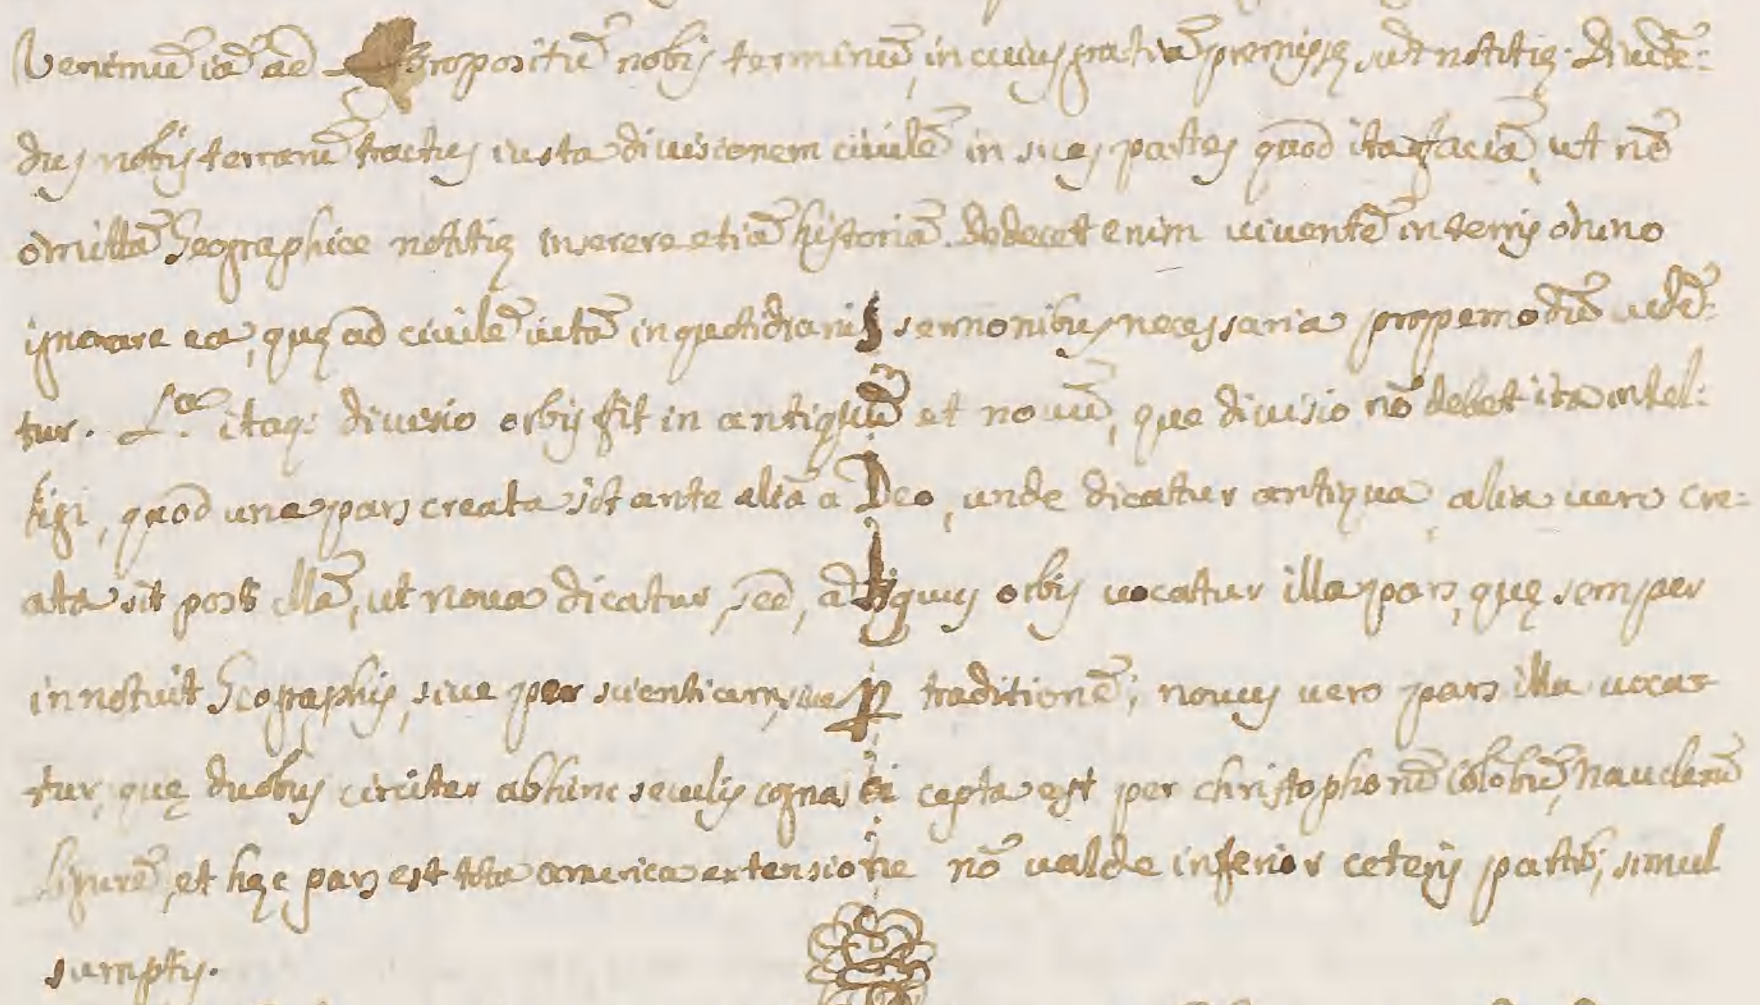 Venimus iã ad propositũ nobis terminũ, in cuius gratiã premissę sũt notitię. Diuidẽ:
dus nobis terrarũ tractus iusta diuisionem ciuilẽ in suas partes quod ita faciã, ut nõ
omittã Geographice notitię inserere etiã historiã. Dedecet enim uiuentẽ in terris om̃ino
ignorare ea, quę ad ciuilẽ uitã in quotidianis sermonibus necessaria propemodũ uidẽ:
tur. P.a itaq: diuisio orbis fit in antiquũ et nouũ, que diuisio nõ debet ita intel:
ligi, quod una pars creata sit ante aliã a Deo, unde dicatur antiqua, alia uero cre:
ata sit post illã, ut noua dicatur, sed, ãtiquus orbis uocatur illa pars, quę semper
innotuit Geographis, siue per scientiam, siue p traditionẽ; nouus uero pars illa uoca:
tur, quę duobus circiter abhinc seculis cognosci cepta est per christophorũ Colõbũ, Nauclerũ
ligurẽ, et hęc pars est tota america extensione nõ ualde inferior ceteris partib; simul
sumptis.